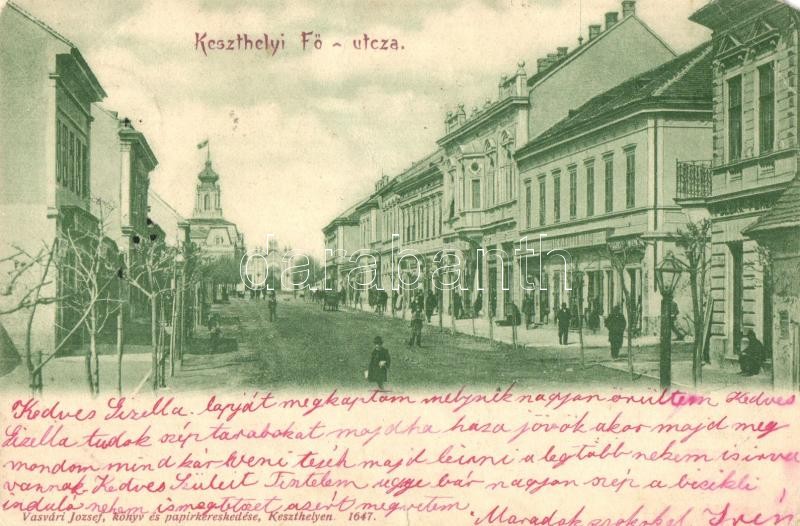 Keszthelyi Fő - utcza.
darabanth
Kedves Gizella. lapját megkaptam melynek nagyon örültem Kedves
Gizella tudok szép tarabokat majd ha haza jövök akor majd meg
mondom mind kár Weni tesék majd leirni a legtöbb nekem is irva
vannak Kedves Szüleit Tisztelem ugye bár nagyon szép a bicikli
induló nekem is megtetszet azért megvetem
Maradok Irén
Vasvári József, könyv és papirkereskedése, Keszthelyen. 1647.